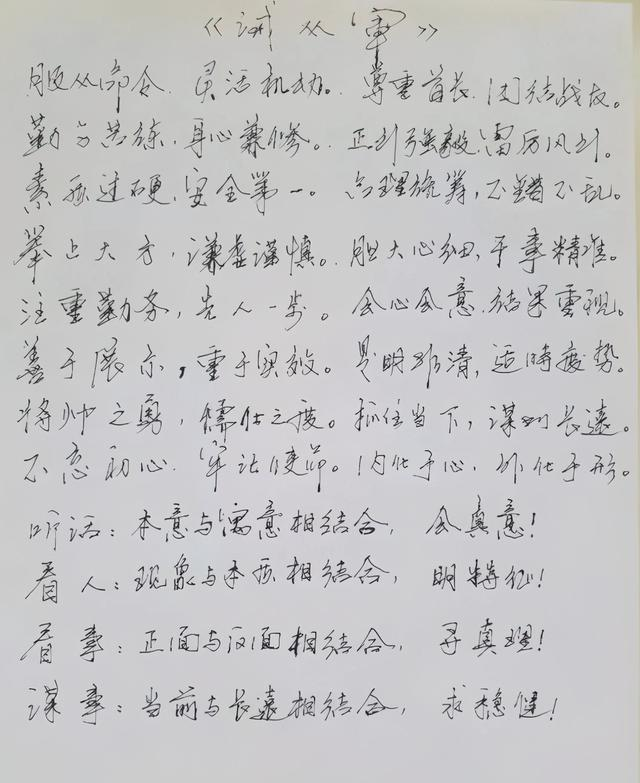 《诫从军》
服从命令、灵活机动。尊重首长、团结战友。
勤学苦练，身心兼修。正列强毅，雷厉风行。
素质过硬，安全第一。合理统筹，不错不乱。
举止大方，谦虚谨慎。胆大心细，干事精准。
注重勤务，先人一步。会心会意，结果重现。
善于展示，重于实效。是明非清，适時度势。
将帅之勇，儒仕之度。抓住当下，谋划长遠。
不忘初心、牢记使命。内化于心，外化于形。
听话：本意与寓意相结合，会真意！
看人：现象与本质相结合，明特征！
看事：正面与反面相结合，寻真理！
谋事：当前与长遠相结合，求稳健！